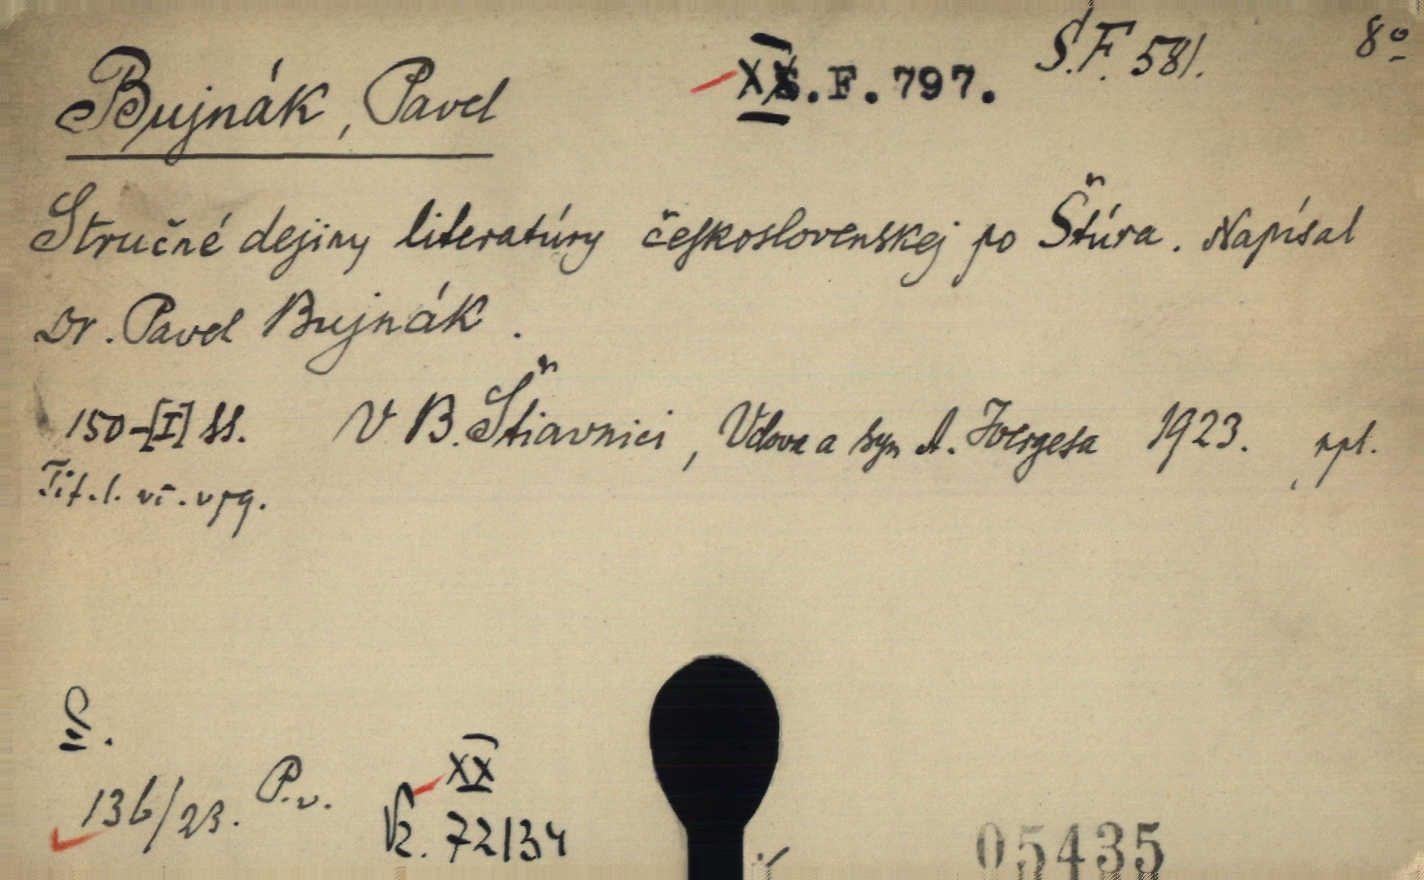 Bujnák, Pavel
XX S.F.797.
S.F. 581.
8º
Stručné dejiny literatúry československej po Štúra. Napísal
Dr. Pavel Bujnák.
150-[I] ss. V B. Štiavnici, Vdova a syn A. Joergesa 1923. npl.
Tit. l. vi. vpg.
136/23. P.v.
XX
72134
05435